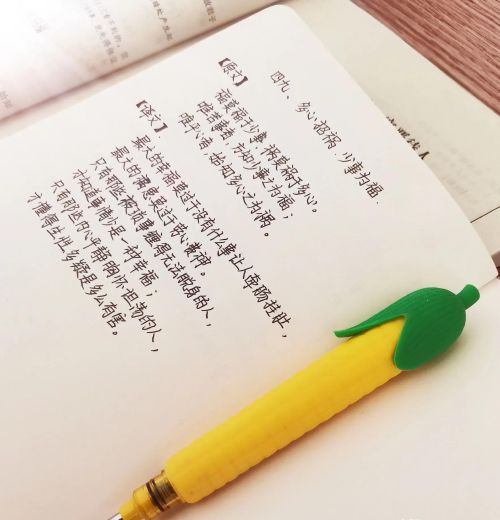 四九、多心招祸,少事为福.
【原文】
福莫福于少事,祸莫祸于多心。
唯苦事者,方知少事之为福;
唯平心者,始知多心之为祸。
【译文】
最大的幸福莫过于没有什么事让人牵肠挂肚,
最大的祸患莫过于疑心散神。
只有那些被琐事缠得无法脱身的人,
才知道事情少是一种幸福;
只有那些心平静,胸怀坦荡的人,
才懂得生性多疑是多么有害。